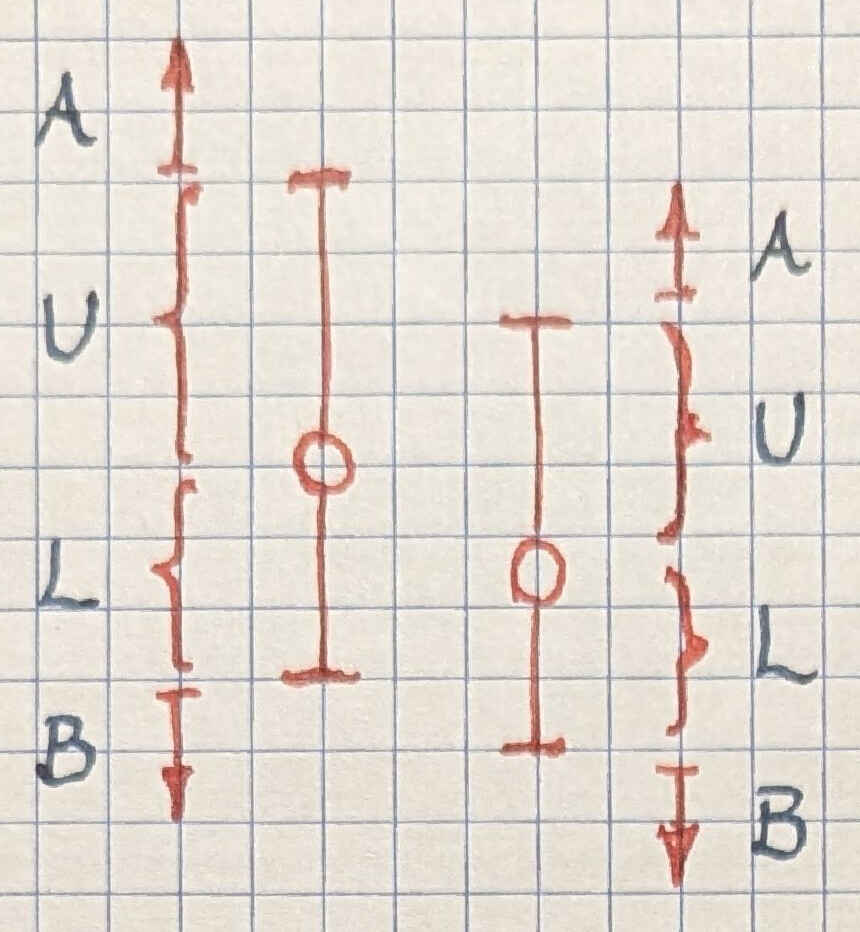 A
U
L
B
A
U
L
B